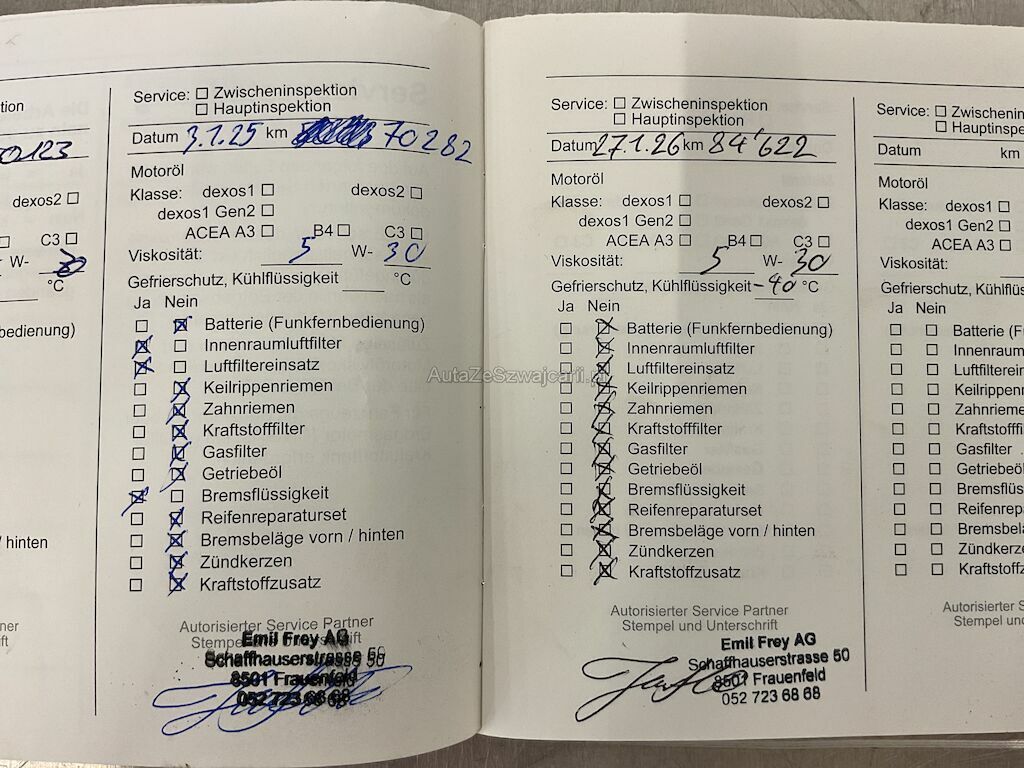 tion
0123
dexos2 ☐
☐ C3 ☐
W- 30
°C
nbedienung)
/ hinten
ner
ift
Service: ☐ Zwischeninspektion
☐ Hauptinspektion
Datum 3.1.25 km 70282
Motoröl
Klasse: dexos1 ☐ dexos2 ☐
dexos1 Gen2 ☐
ACEA A3 ☐ B4 ☐ C3 ☐
Viskosität: 5 W- 30
Gefrierschutz, Kühlflüssigkeit ____ °C
Ja Nein
☐ ☒ Batterie (Funkfernbedienung)
☒ ☐ Innenraumluftfilter
☒ ☐ Luftfiltereinsatz
☐ ☒ Keilrippenriemen
☐ ☒ Zahnriemen
☐ ☒ Kraftstofffilter
☐ ☒ Gasfilter
☐ ☒ Getriebeöl
☒ ☐ Bremsflüssigkeit
☐ ☒ Reifenreparaturset
☐ ☒ Bremsbeläge vorn / hinten
☐ ☒ Zündkerzen
☐ ☒ Kraftstoffzusatz
Autorisierter Service Partner
Stempel und Unterschrift
Emil Frey AG
Schaffhauserstrasse 50
8501 Frauenfeld
052 723 68 68
Service: ☐ Zwischeninspektion
☐ Hauptinspektion
Datum 27.1.26 km 84'622
Motoröl
Klasse: dexos1 ☐ dexos2 ☐
dexos1 Gen2 ☐
ACEA A3 ☐ B4 ☐ C3 ☐
Viskosität: 5 W- 30
Gefrierschutz, Kühlflüssigkeit -40 °C
Ja Nein
☐ ☒ Batterie (Funkfernbedienung)
☐ ☒ Innenraumluftfilter
☐ ☒ Luftfiltereinsatz
☐ ☒ Keilrippenriemen
☐ ☒ Zahnriemen
☐ ☒ Kraftstofffilter
☐ ☒ Gasfilter
☐ ☒ Getriebeöl
☐ ☒ Bremsflüssigkeit
☐ ☒ Reifenreparaturset
☐ ☒ Bremsbeläge vorn / hinten
☐ ☒ Zündkerzen
☐ ☒ Kraftstoffzusatz
Autorisierter Service Partner
Stempel und Unterschrift
Emil Frey AG
Schaffhauserstrasse 50
8501 Frauenfeld
052 723 68 68
Service: ☐ Zwischenin
☐ Hauptinspe
Datum km
Motoröl
Klasse: dexos1 ☐
dexos1 Gen2 ☐
ACEA A3 ☐
Viskosität:
Gefrierschutz, Kühlflüss
Ja Nein
☐ ☐ Batterie (F
☐ ☐ Innenraum
☐ ☐ Luftfilterei
☐ ☐ Keilrippen
☐ ☐ Zahnrieme
☐ ☐ Kraftstofffi
☐ ☐ Gasfilter
☐ ☐ Getriebeöl
☐ ☐ Bremsflüs
☐ ☐ Reifenrepa
☐ ☐ Bremsbelä
☐ ☐ Zündkerze
☐ ☐ Kraftstoffz
Autorisierter S
Stempel und
AutaZeSzwajcarii.pl